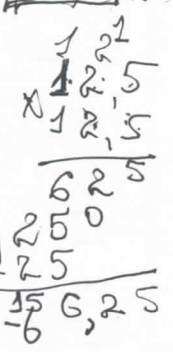 1 2 1
12,5
× 12,5
6 2 5
2 5 0
1 2 5
15 6,25
-6